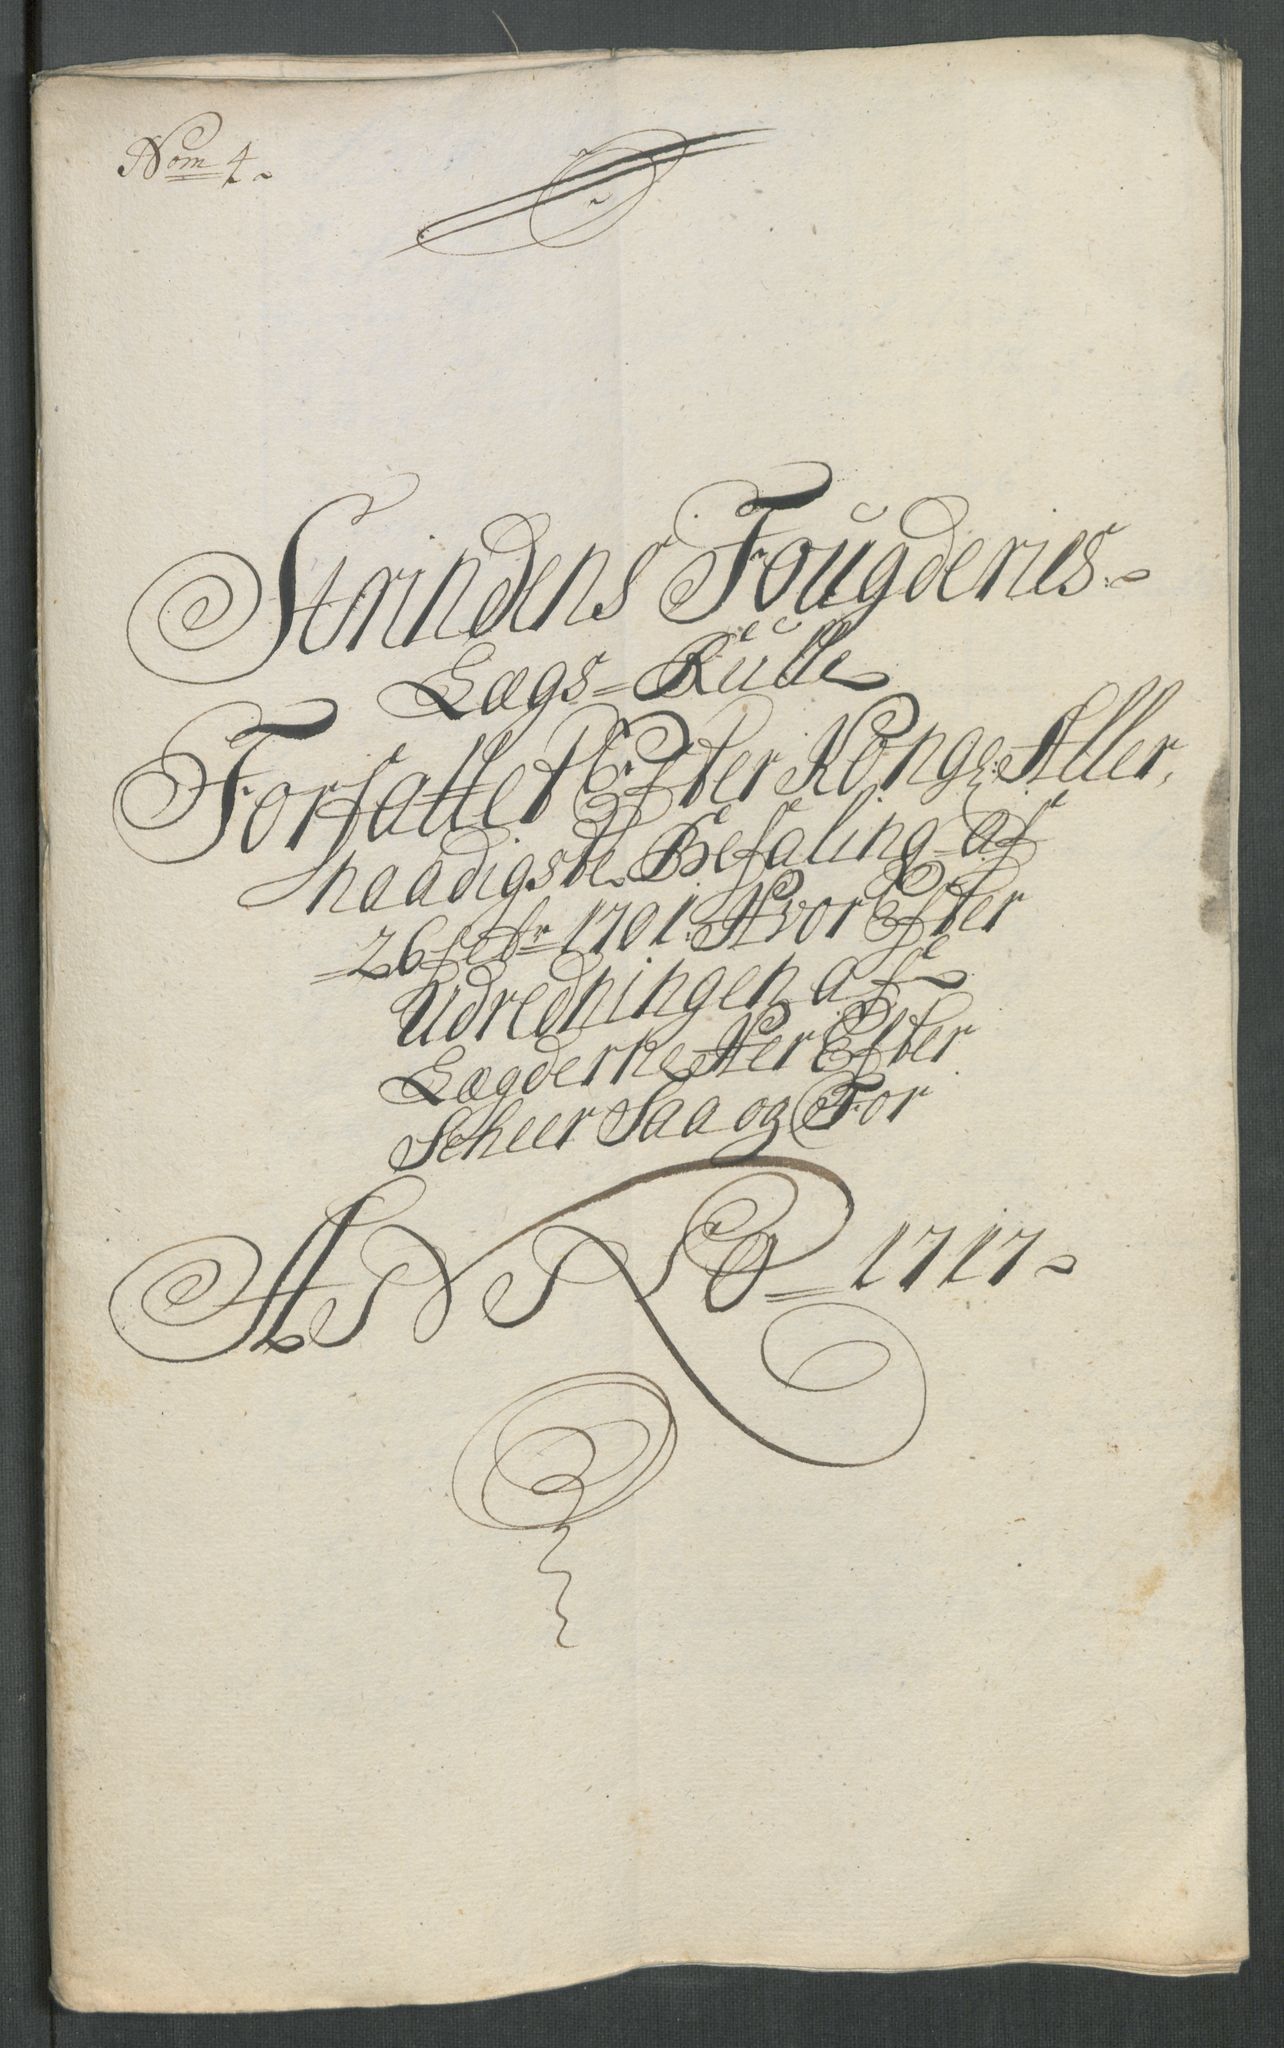 Nom 4.
Strindens Foŭgderies
Lægs=Rŭlle
Forfattet Efter Kong: Aller,
naadigste Befaling af
26 febr 1701. Hvor Efter
Udredningen af
Lægderne Her Efter
Scheer Saa og For
ANNO 1717